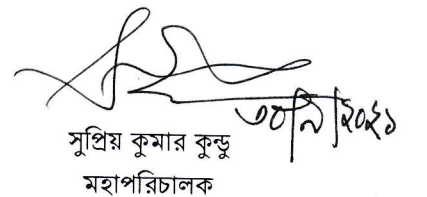 ৩০|৯|২০২১
সুপ্রিয় কুমার কুন্ডু
মহাপরিচালক